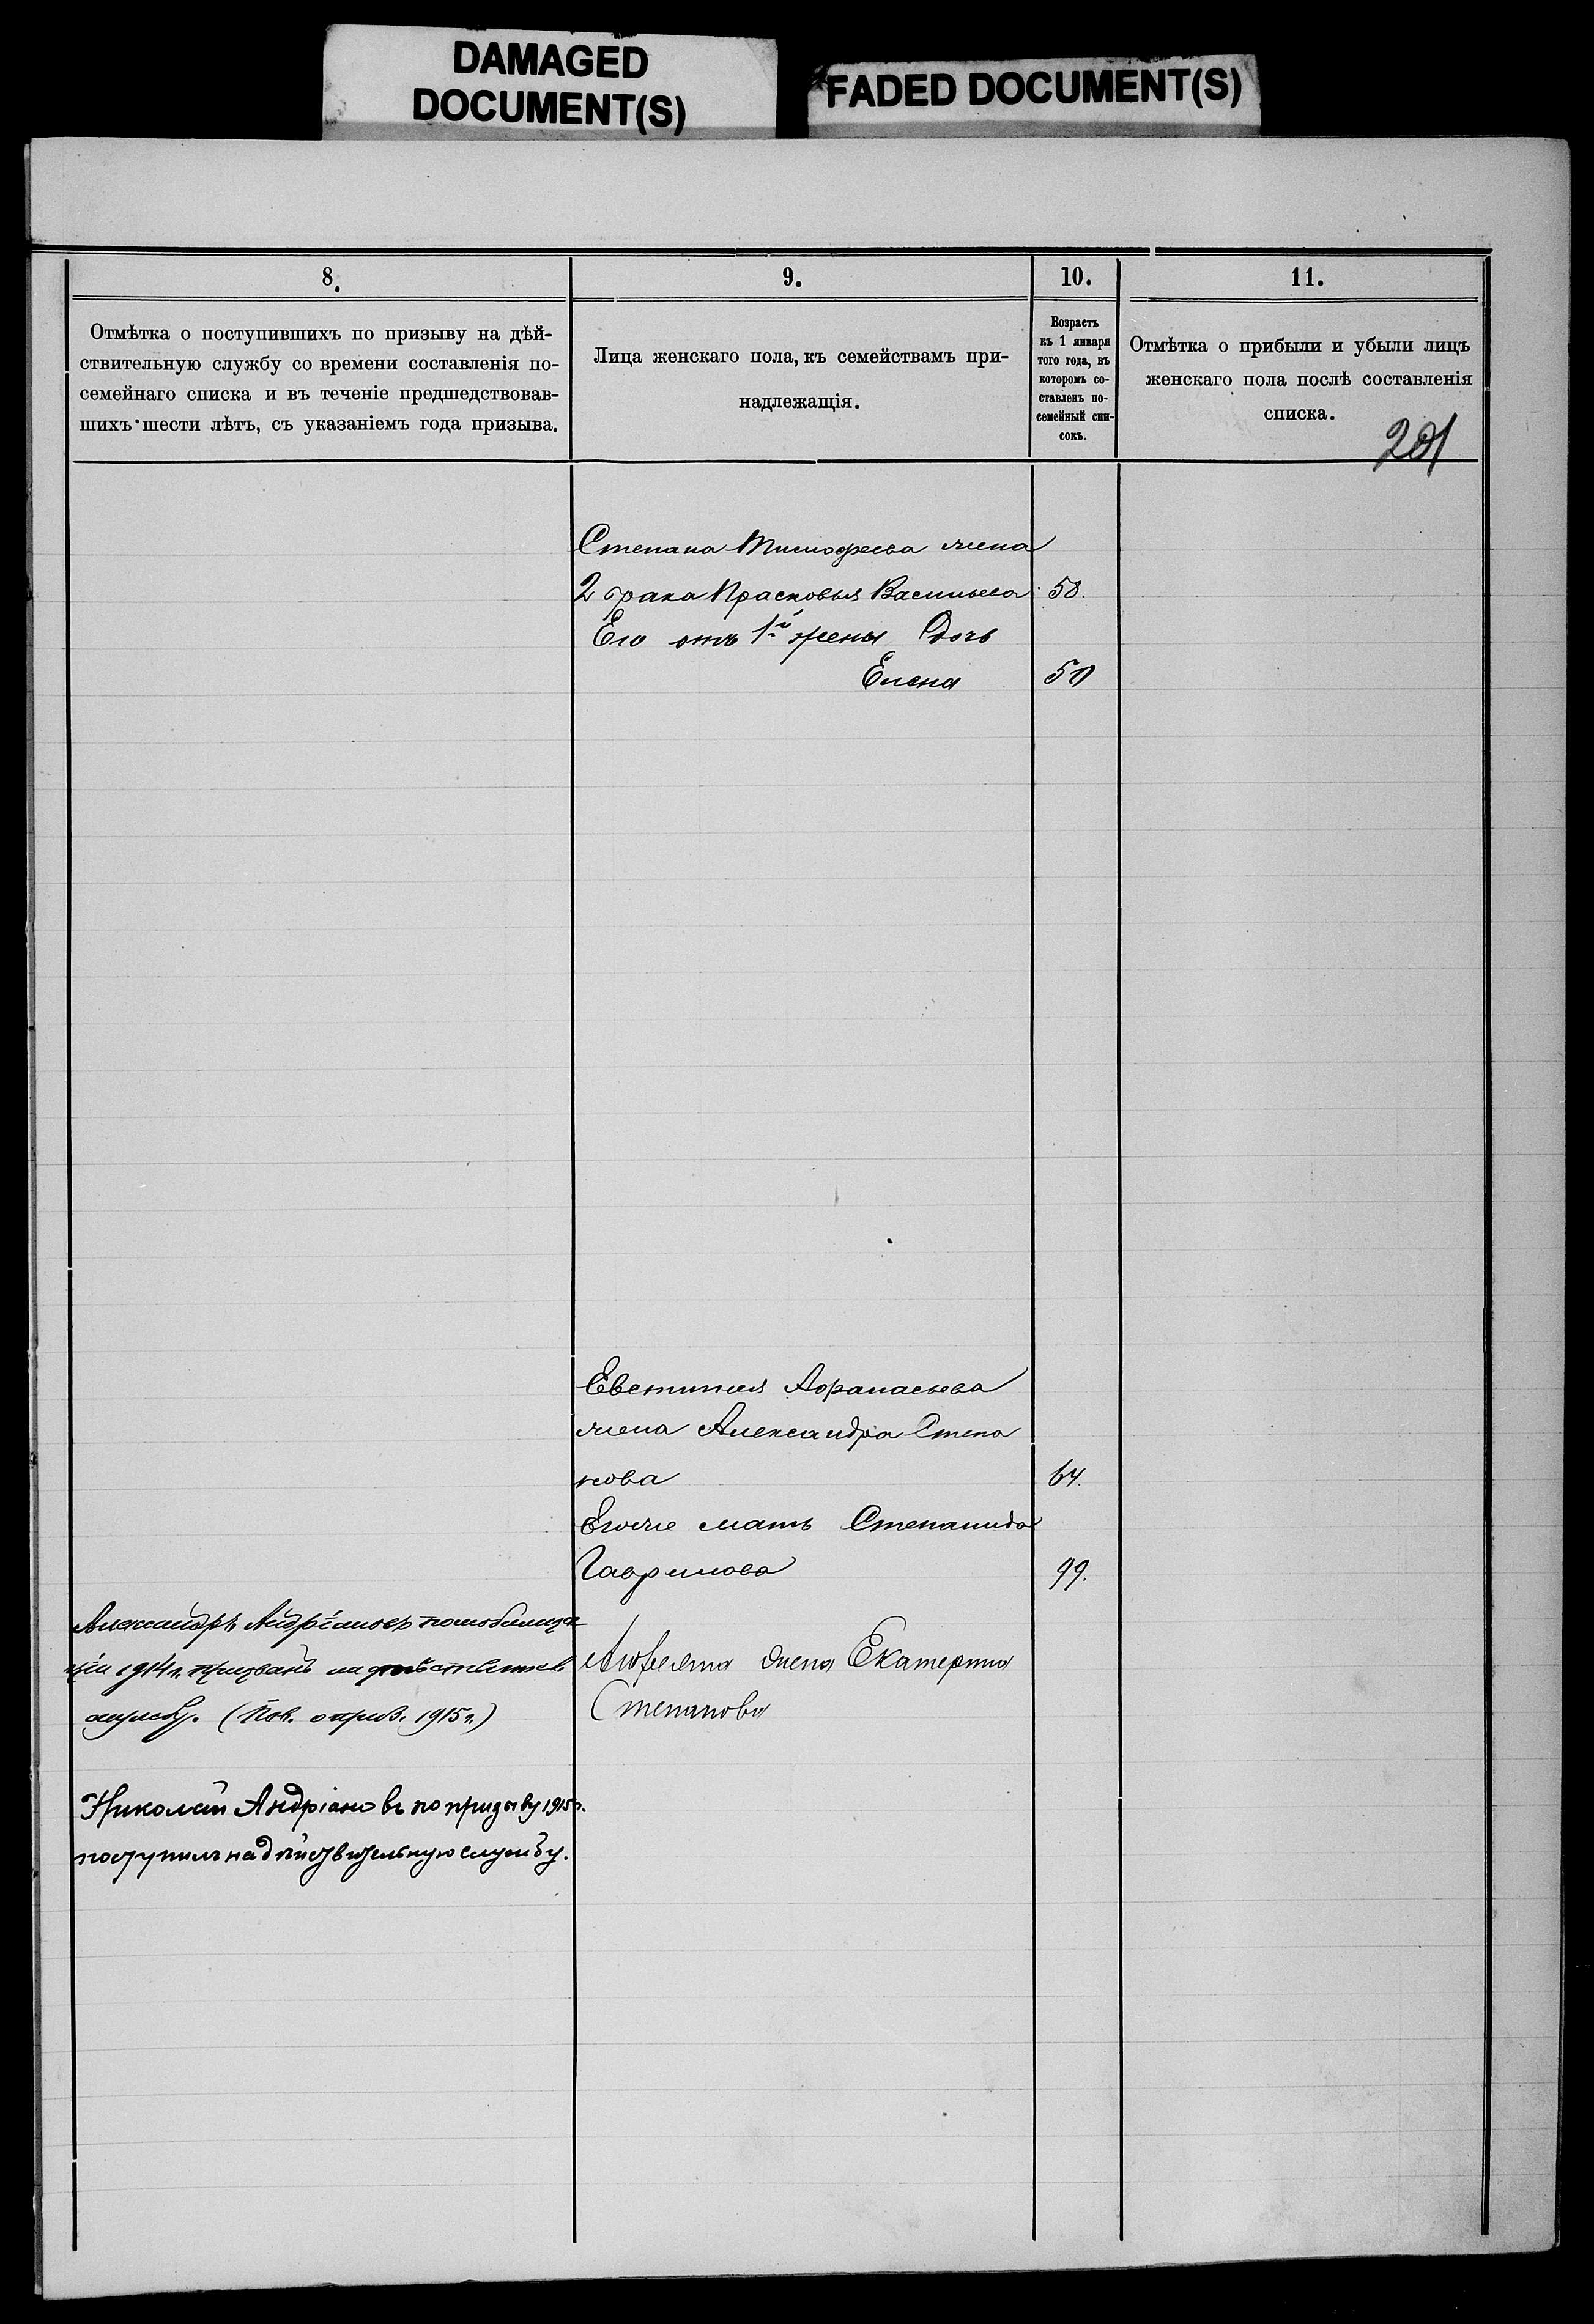 DAMAGED
DOCUMENT(S)
FADED DOCUMENT(S)
8.
9.
10.
11.
Отмѣтка о поступившихъ по призыву на дѣй-
ствительную службу со времени составленія по-
семейнаго списка и въ теченіе предшедствовав-
шихъ шести лѣтъ, съ указаніемъ года призыва.
Лица женскаго пола, къ семействамъ при-
надлежащія.
Возрастъ
къ 1 января
того года, въ
которомъ со-
ставленъ по-
семейный спи-
сокъ.
Отмѣтка о прибыли и убыли лицъ
женскаго пола послѣ составленія
списка.
201
Степана Тимофеева жена
2 брака Прасковья Васильева 58.
Его отъ 1й жены Дочь
Елена 50
Евстинея Афанасьева
жена Александра Степа
нова 64.
Егоже мать Степанида
Гаврилова 99.
Александръ Андріановъ по мобилиза
ціи 1914 г. призванъ на
службу. (Пов. о приз. 1915 г.)
жена Екатерина
Степанова
Николай Андріановъ по призыву 1915 г.
поступилъ на дѣйствительную службу.